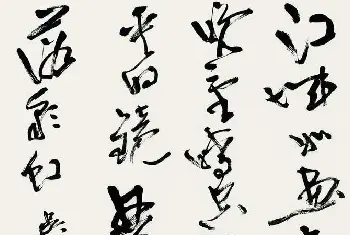 江城如画
晚望晴空
夹明镜
落彩虹